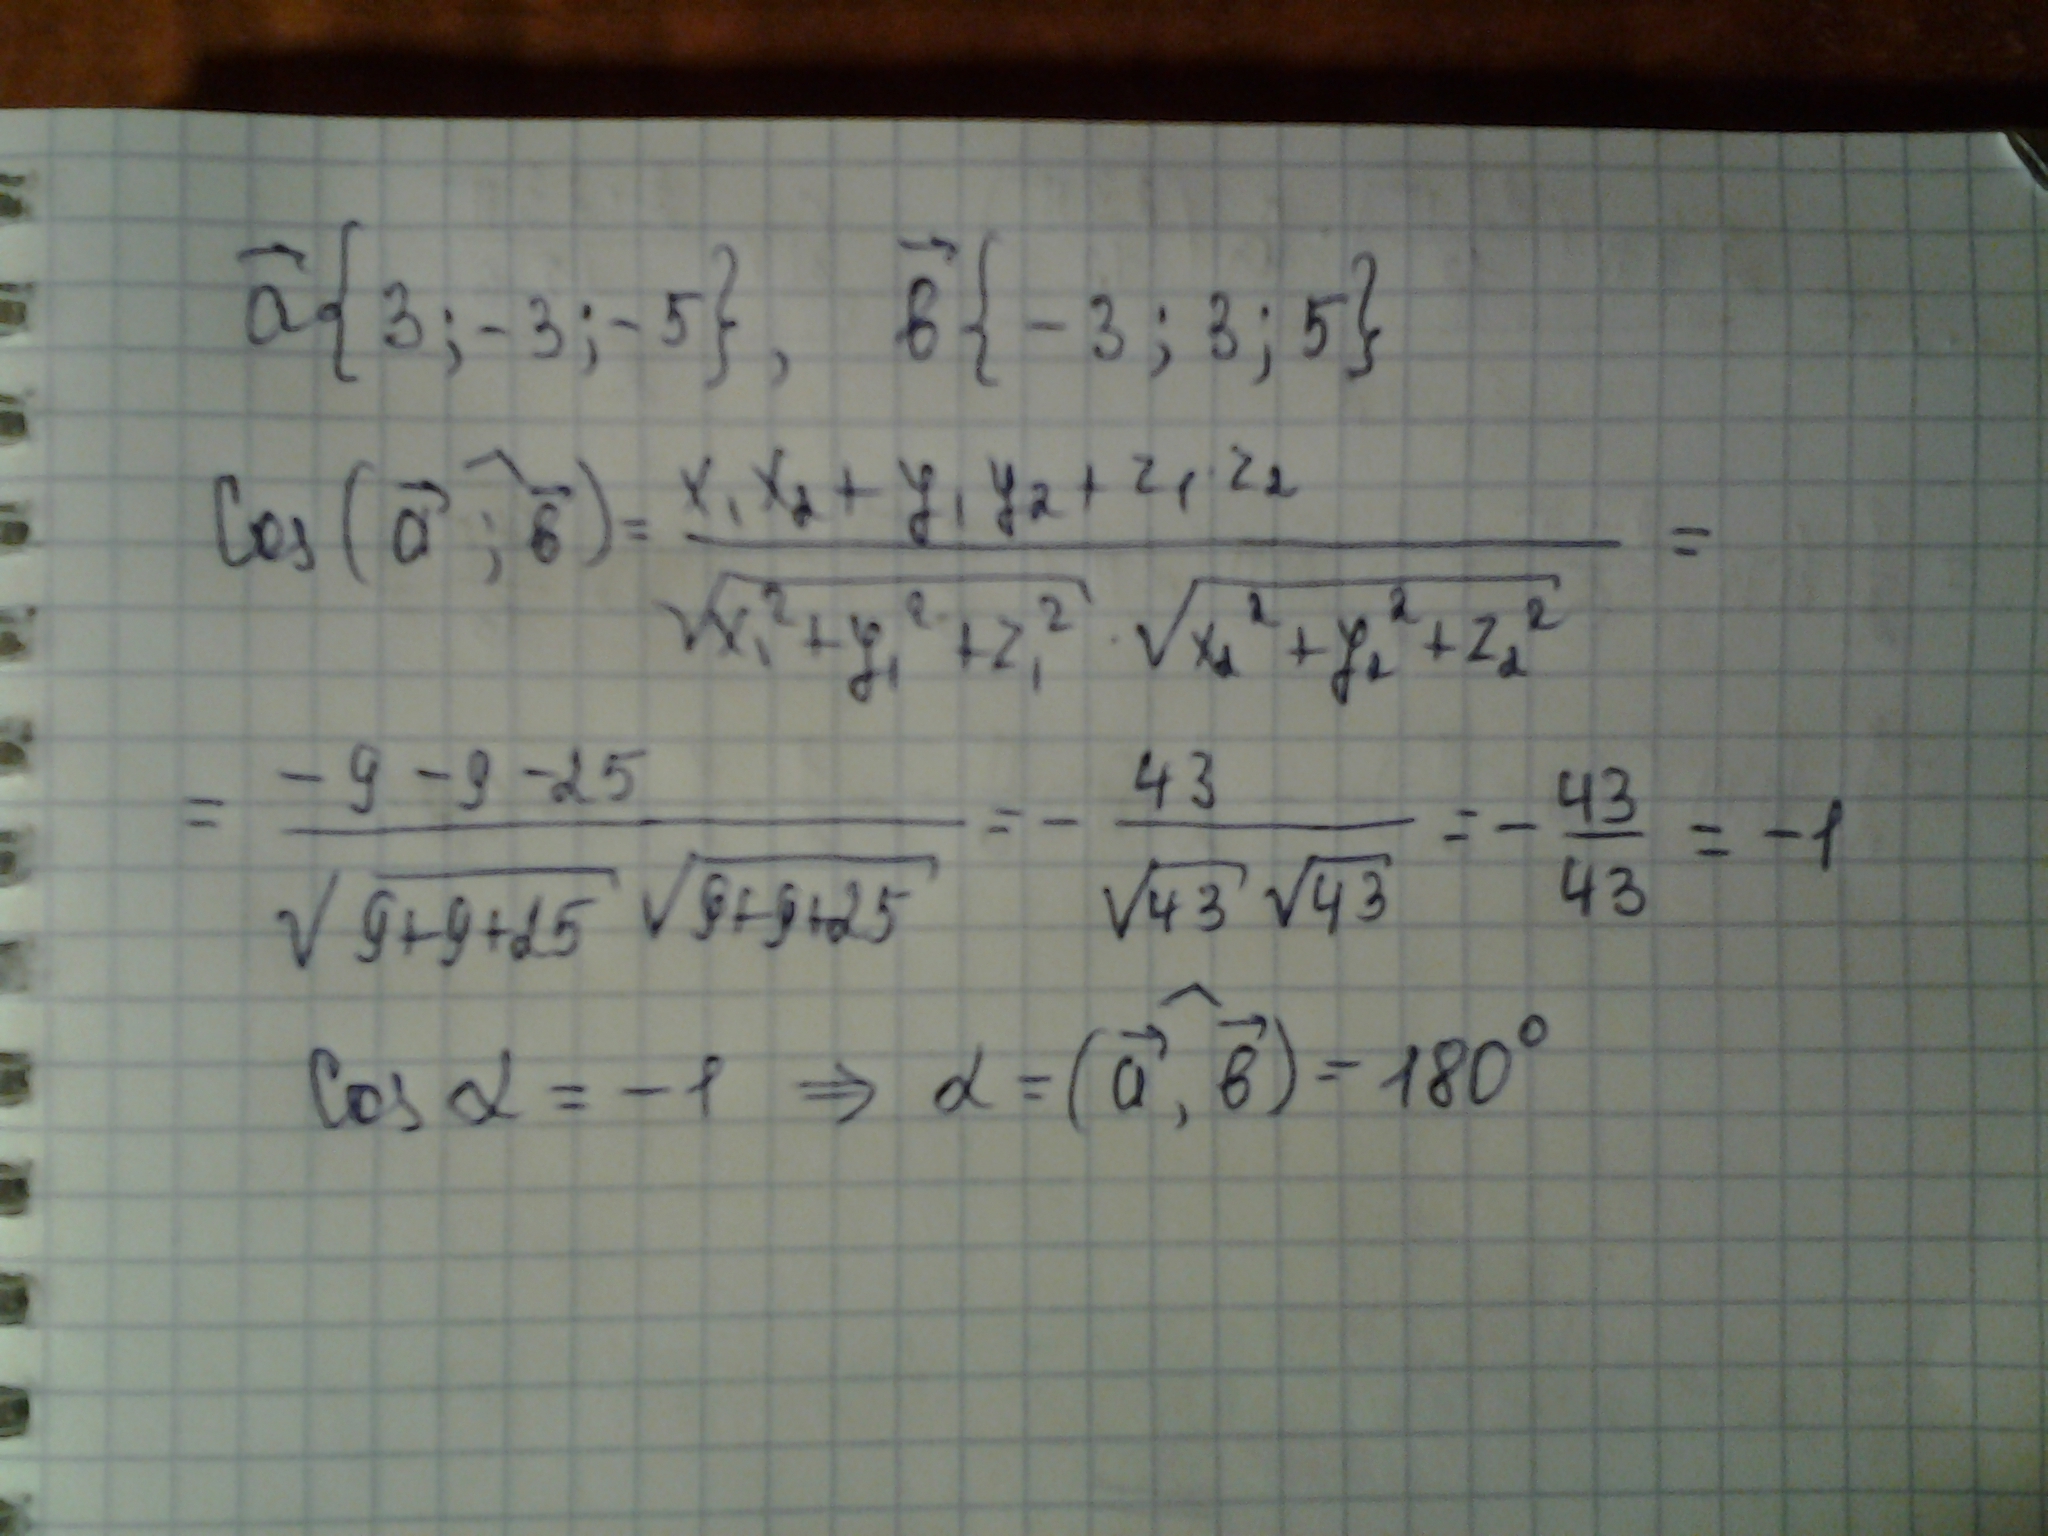 a⃗{3;-3;-5}, в⃗{-3;3;5}
Cos(a⃗;^в⃗)= (x₁x₂+y₁y₂+z₁·z₂)/(√(x₁²+y₁²+z₁²)·√(x₂²+y₂²+z₂²)) =
= (-9-9-25)/(√(9+9+25) √(9+9+25)) = - 43/(√43 √43) = - 43/43 = -1
Cos α = -1 ⇒ α = (a⃗,^в⃗) = 180°